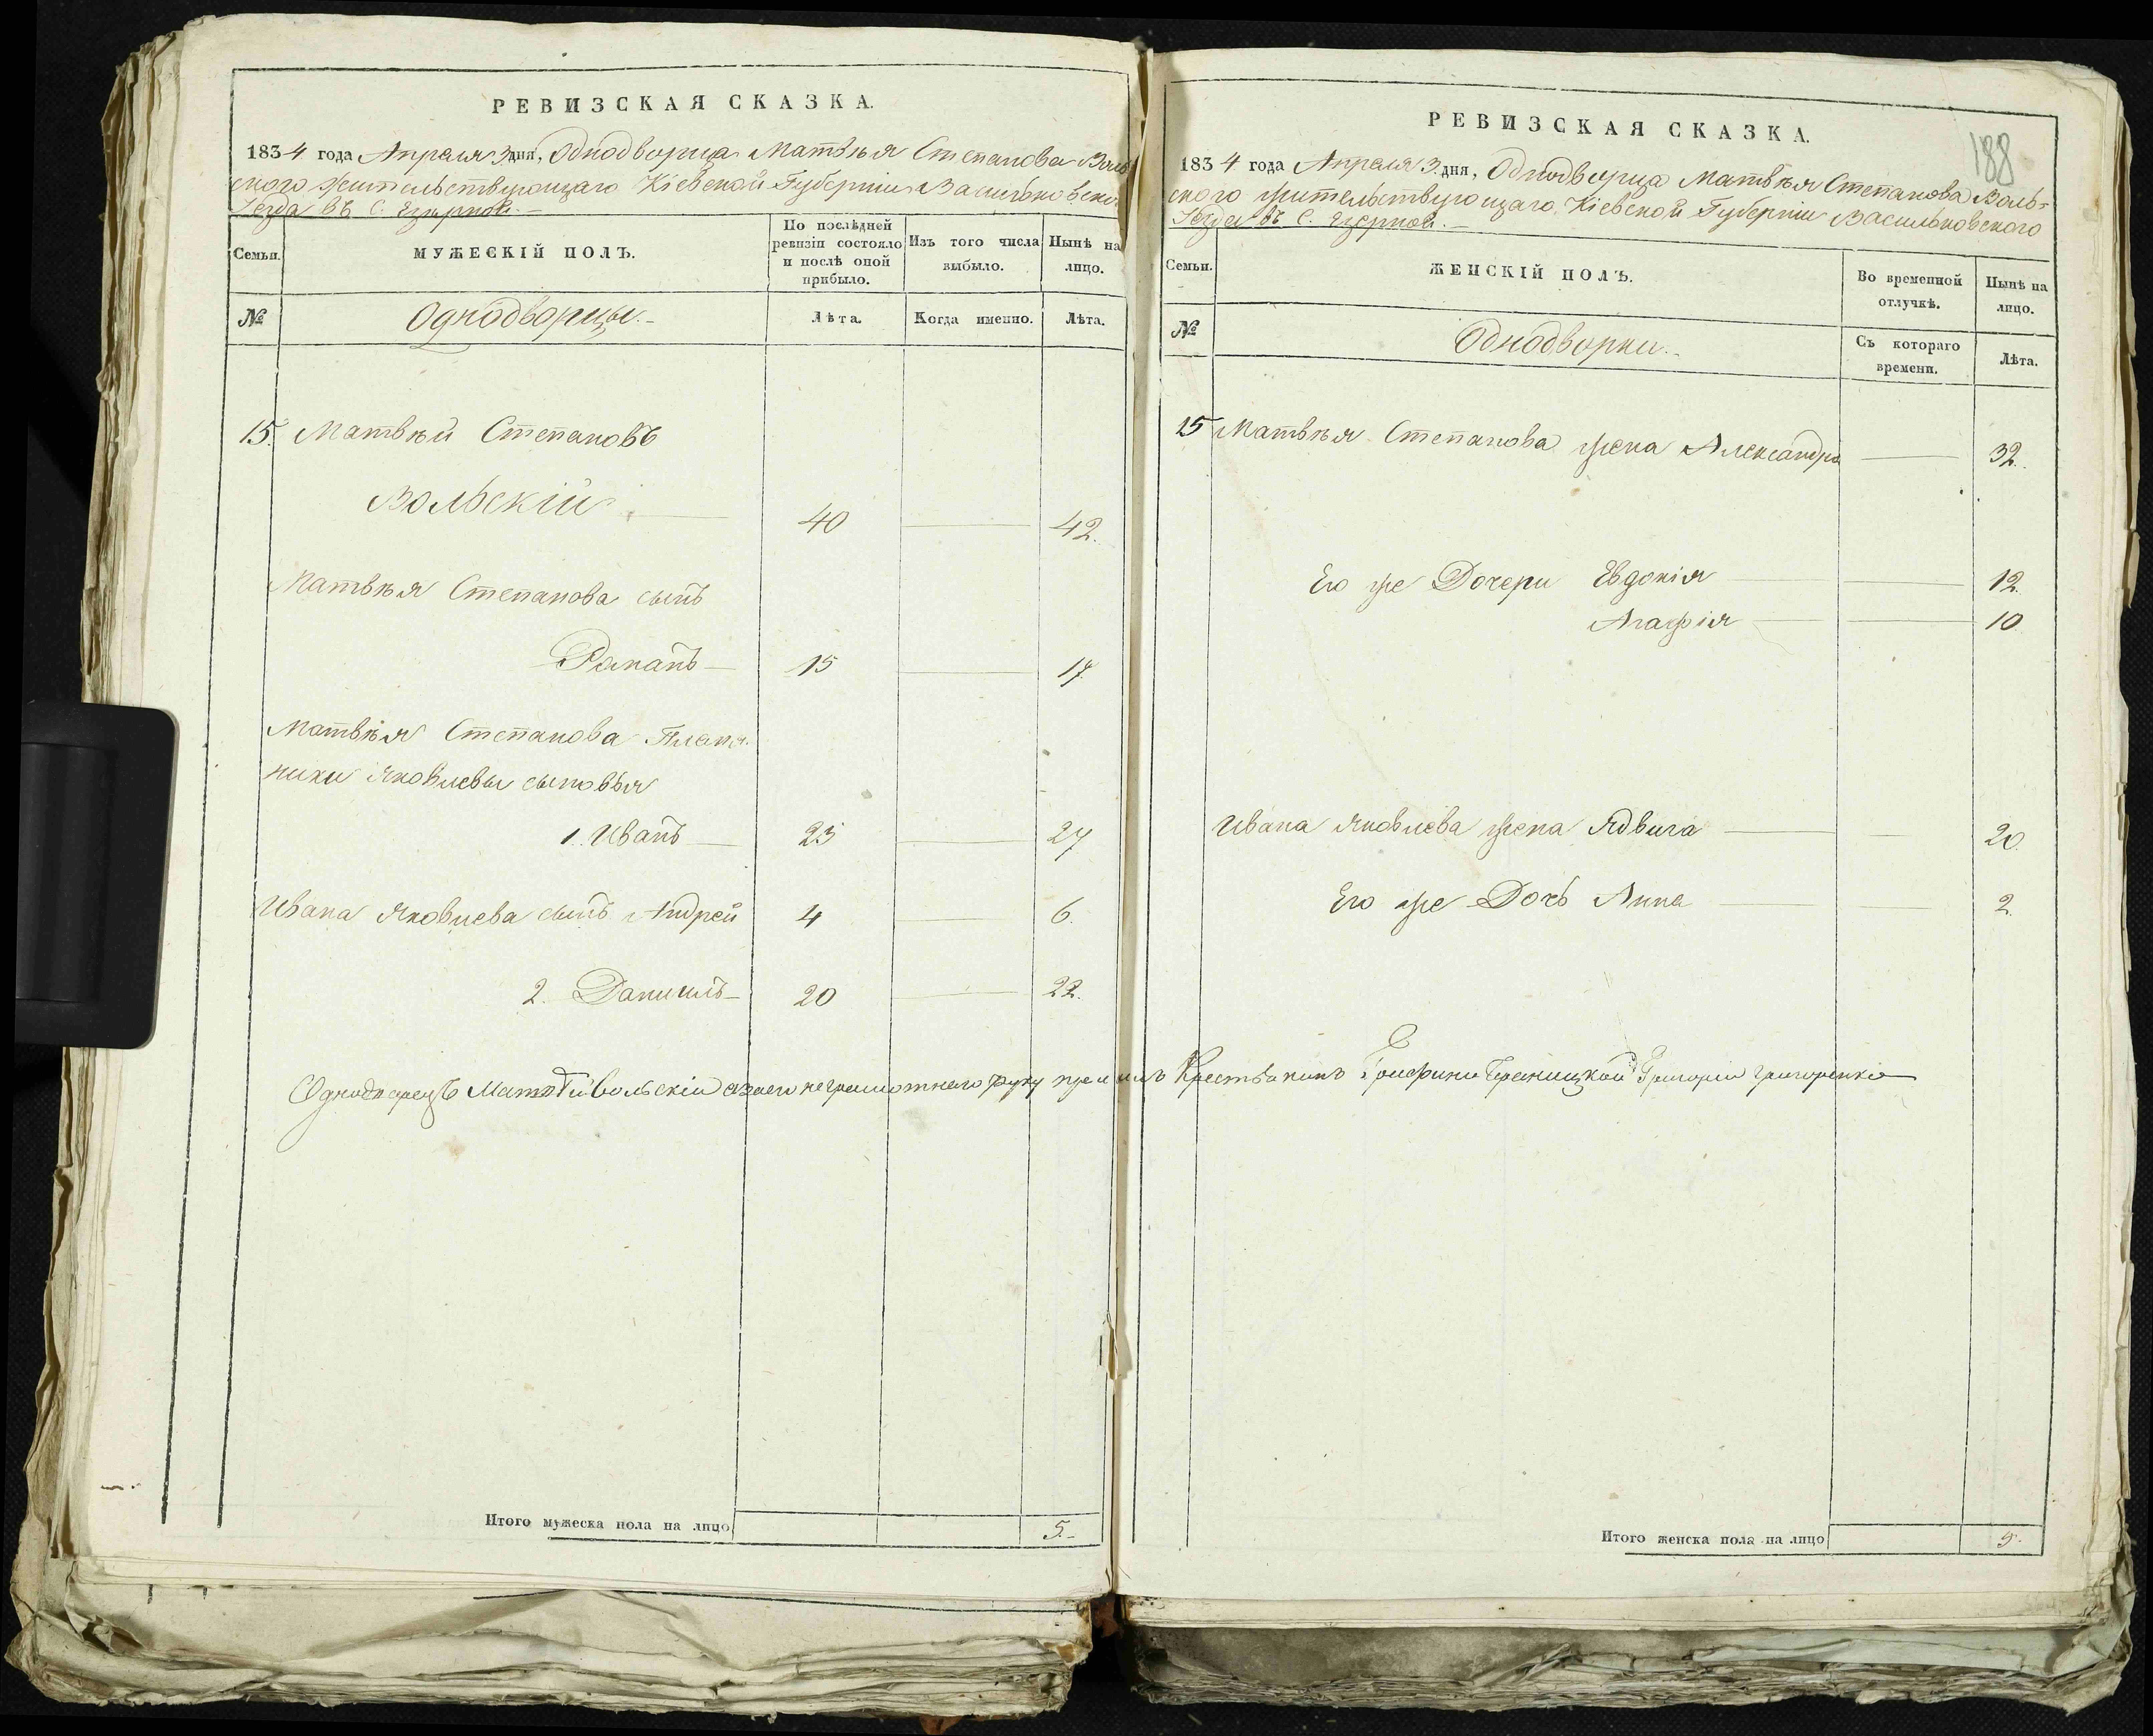 РЕВИЗСКАЯ СКАЗКА.
1834 года Апреля 3 дня, Однодворца Матвѣя Степанова Воль
ского жительствующаго Кіевской Губерніи Васильковско
Уезда въ С. Езерной.
Семьи.
МУЖЕСКІЙ ПОЛЪ.
По послѣдней ревизіи состояло и послѣ оной прибыло.
Изъ того числа выбыло.
Нынѣ на лицо.
№
Однодворцы.
Лѣта.
Когда именно.
Лѣта.
15. Матвѣй Степановъ
Вольскій 40 42.
Матвѣя Степанова сынъ
Романъ 15 17.
Матвѣя Степанова Племя-
ники Яковлевы сыновья
1. Иванъ 25 27
Ивана Яковлева сынъ Андрей 4 6.
2. Данилъ 20 22.
Итого мужеска пола на лицо 5.
РЕВИЗСКАЯ СКАЗКА.
188
1834 года Апреля 3 дня, Однодворца Матвѣя Степанова Воль-
ского жительствующаго Кіевской Губерніи Васильковского
Уезда въ С. Езерной.
Семьи.
ЖЕНСКІЙ ПОЛЪ.
Во временной отлучкѣ.
Нынѣ на лицо.
№
Однодворки.
Съ котораго времени.
Лѣта.
15 Матвѣя Степанова жена Александра 32.
Его же Дочери Евдокія 12.
Агафія 10
Ивана Яковлева жена Ядвига 20.
Его же Дочь Анна 2.
Однодворецъ Матвей Вольскій за его неграмотнаго руку приложилъ Крестьянинъ Графини Браницкой Григорій Григоренко
Итого женска пола на лицо 5.